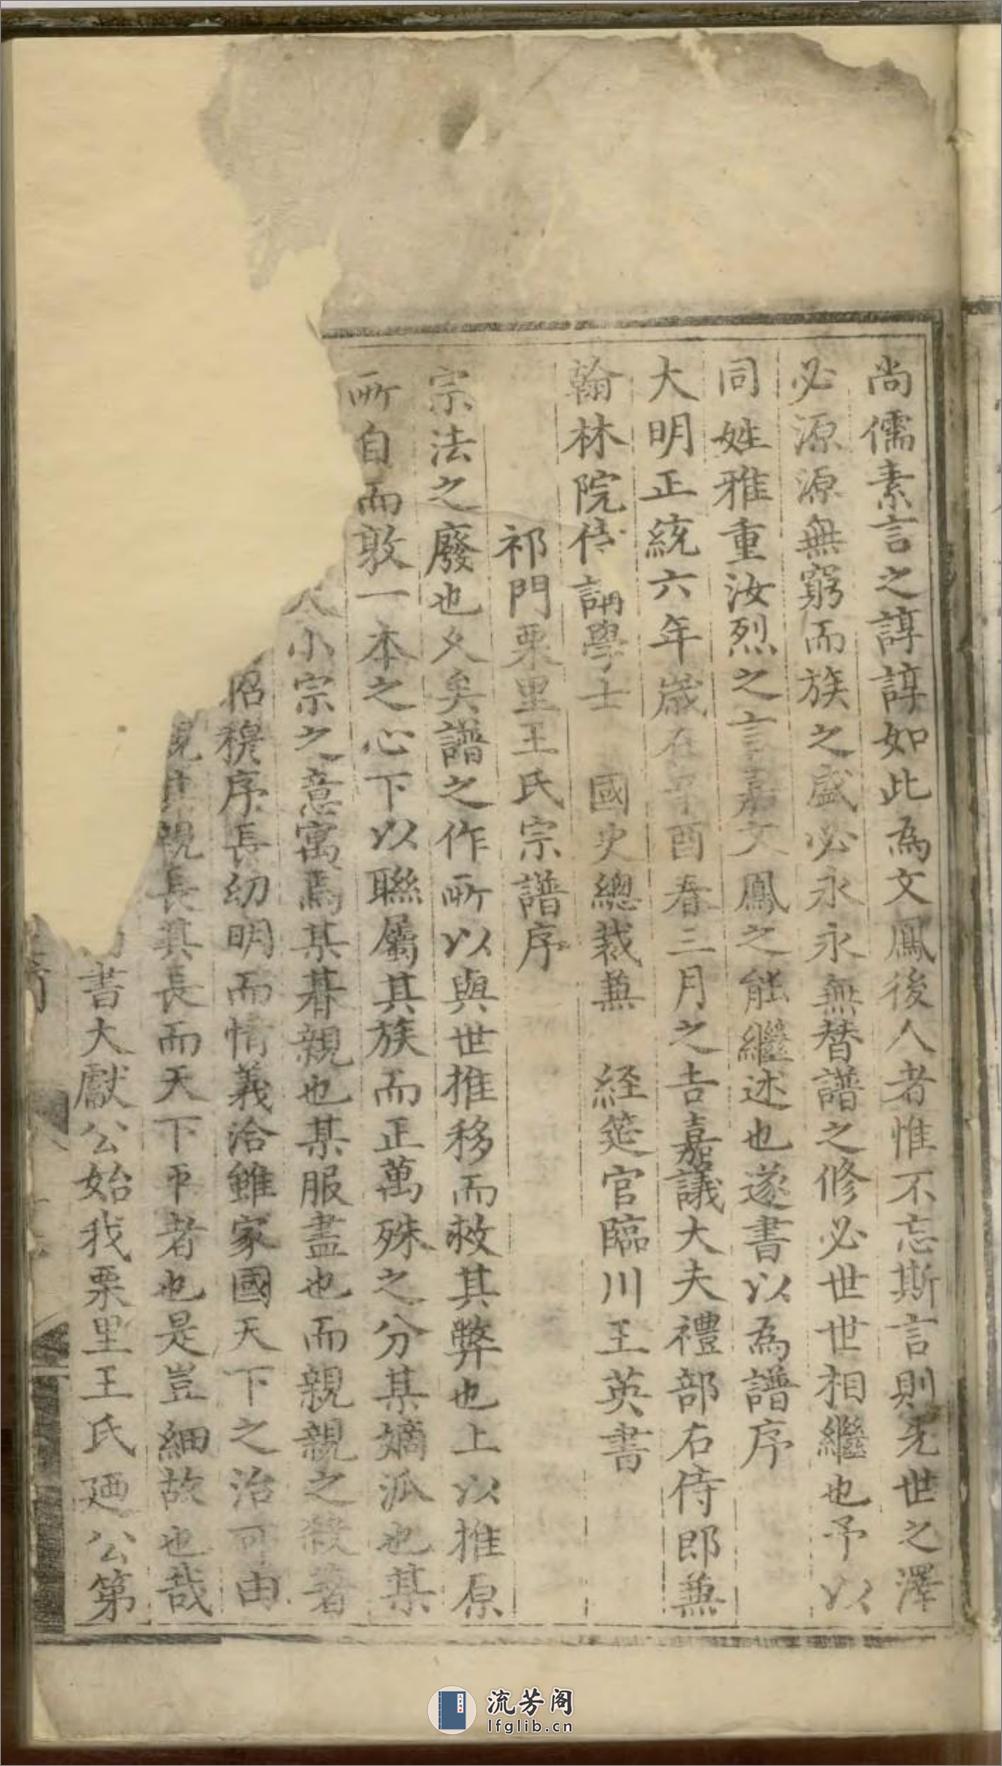 尚儒素言之諄諄如此為文鳳後人者惟不忘斯言則先世之澤
必源源無窮而族之盛必永永無替譜之修必世世相繼也予以
同姓雅重汝烈之言嘉文鳳之能繼述也遂書以為譜序
大明正統六年歲在辛酉春三月之吉嘉議大夫禮部右侍郎兼
翰林院侍講學士 國史總裁兼 経筵官臨川王英書
祁門栗里王氏宗譜序
宗法之廢也久矣譜之作所以與世推移而救其弊也上以推原
所自而敦一本之心下以聯屬其族而正萬殊之分某嫡派也某
小宗之意寓焉某朞親也某服盡也而親親之殺著
昭穆序長幼明而情義洽雖家國天下之治可由
親其親長其長而天下平者也是豈細故也哉
書大獻公始我栗里王氏廼公第
流芳阁
lfglib.cn